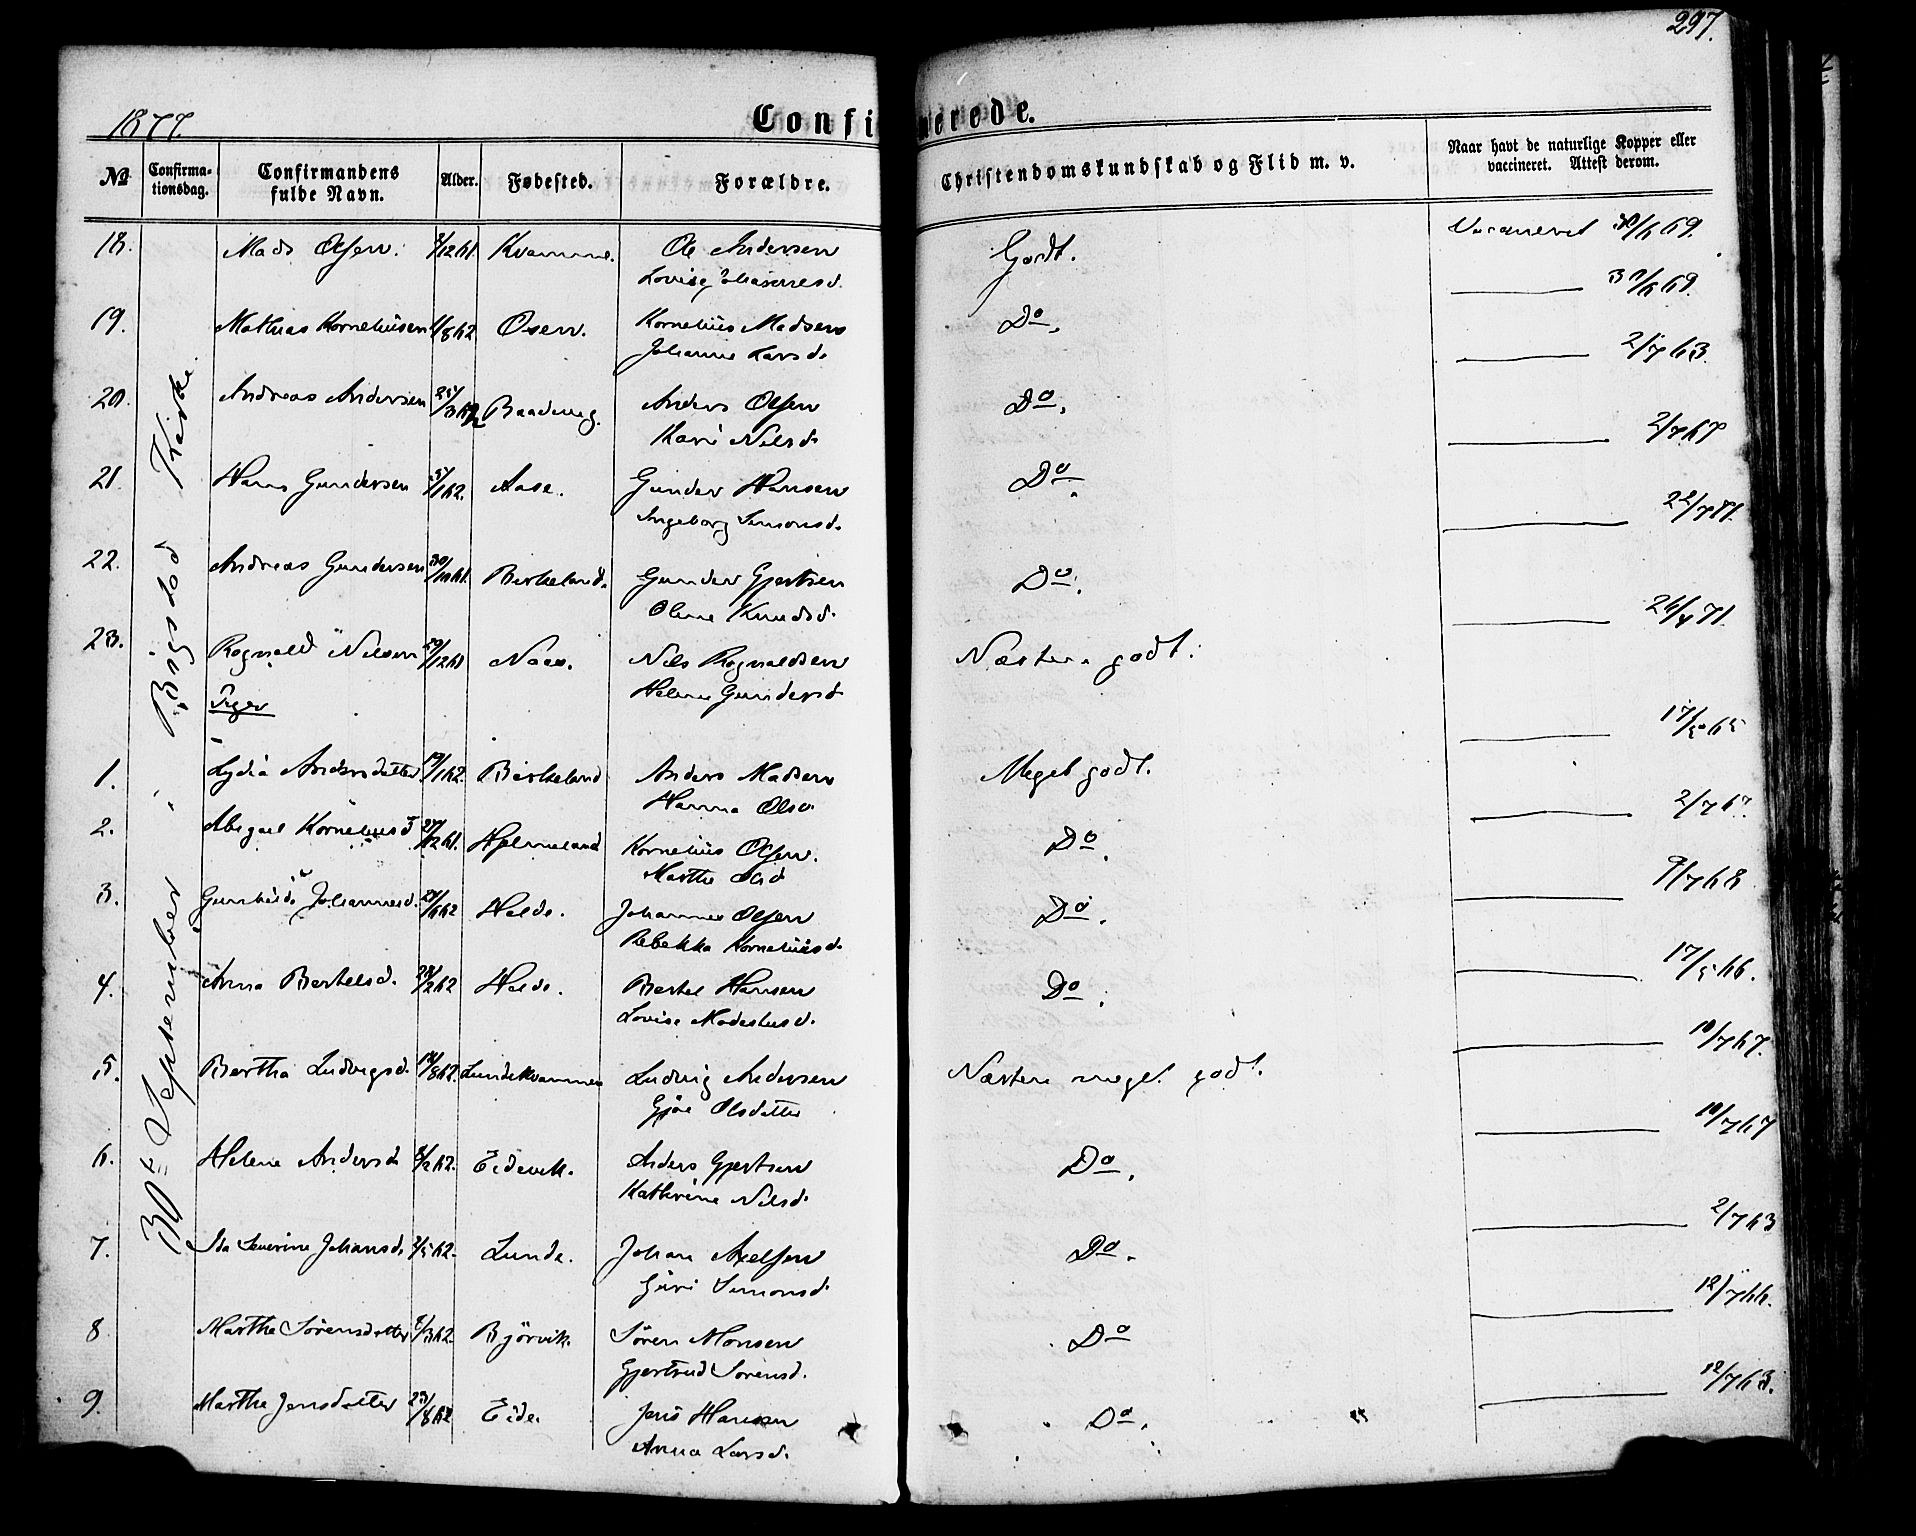 297.
1877
Confirmerede.
No Confirmationsdag. Confirmandens fulde Navn. Alder. Fødested. Forældre. Christendomskundskab og Flid m. v. Naar havt de naturlige Kopper eller vaccineret. Attest derom.
30te September i Bygstad Kirke
18. Mads Olsen. Kvamme. Ole Andersen Godt. Vaccineret 30/6 69.
Lovise Johannesd.
19. Mathias Korneliusen 1/8 62 Osen. Kornelius Madsen Do. 30/6 69.
Johanne Larsd.
20. Andreas Andersen 25/3 62 Anders Olsen Do. 2/7 63.
Kari Nilsd.
21. Hans Gundersen 5/1 62. Aase. Gunder Hansen Do. 2/7 67
Ingeborg Simonsd.
22. Andreas Gundersen 30/10 61. Birkeland. Gunder Gjertsen Do.
Oline Knudsd.
23. Rognald Nilsen 29/12 61 Naes. Nils Rognaldsen Næsten godt.
Helene Gundersd
Piger
1. Lydia Andersdatter 19/1 62. Birkeland Anders Madsen Meget godt. 17/5 65
Hanna Olsd
2. Abigael Korneliusd 27/12 61. Hjelmeland Kornelius Olsen. Do. 2/7 67.
Marthe Olsd
3. Gunhild Johannesd. Helde. Johannes Olsen Do. 9/7 68
Rebekka Korneliusd.
4. Anna Bertelsd. 28/2 62 Helde. Bertel Hansen Do. 17/5 66.
Lovise Modestusd.
5. Bertha Ludvigsd. 18/8 62. Lundekvammen Ludvig Andersen Næsten meget godt. 10/7 67.
Gjøe Olsdatter
6. Helene Andersd 8/2 62. Eidevik. Anders Gjertsen Do. 10/7 67
Kathrine Nilsd.
7. Ida Severine Johansd. 2/5 62. Lunde. Johan Axelsen Do. 2/7 63
Guri Simonsd.
8 Marthe Sørensdatter 8/3 62. Bjørvik. Søren Monsen Do 12/7 66.
Gjertrud Sørensd.
9. Marthe Jensdatter 23/8 62 Eide. Jens Hansen Do. 12/7 63.
Anna Larsd.